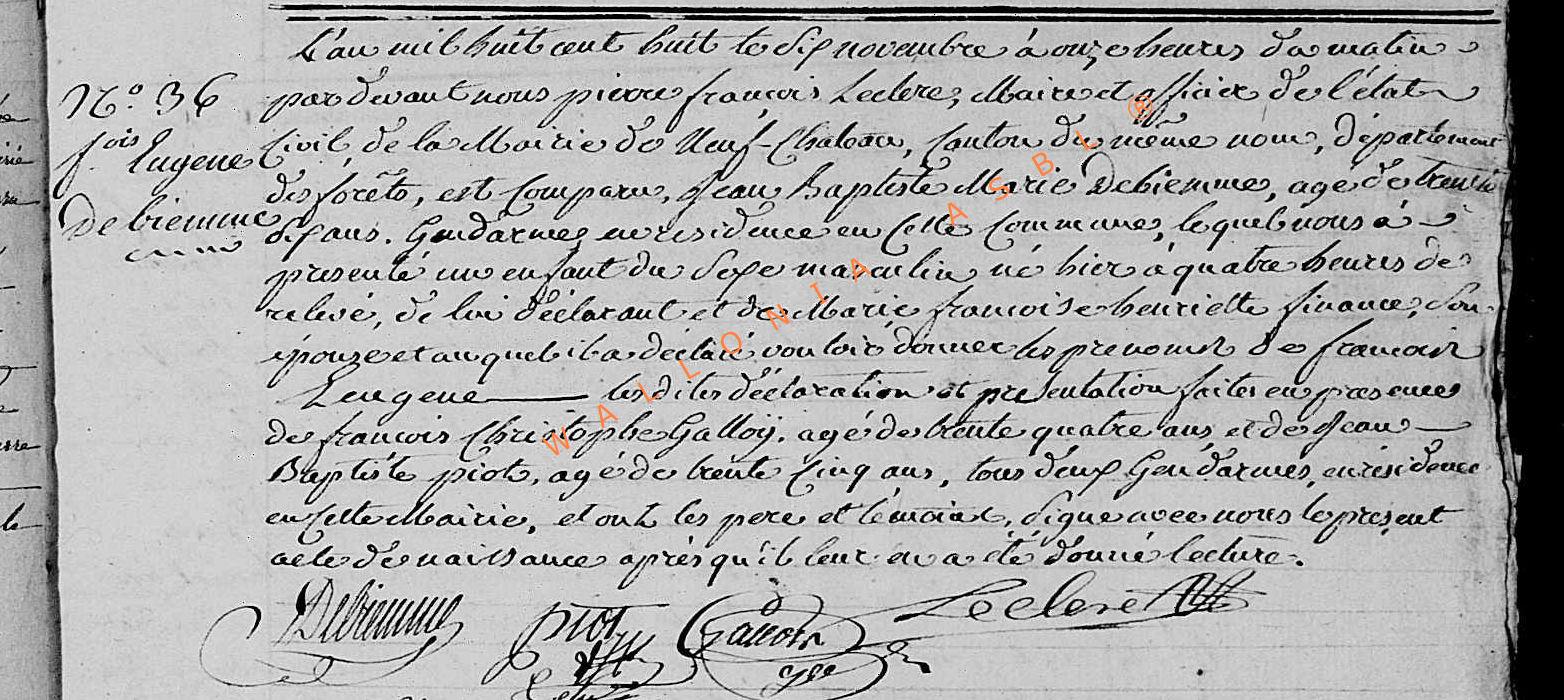 L'an mil huit cent huit le dix novembre à onze heures du matin
N.o 36
par devant nous pierre françois Leclere, Maire et officier de l'état
fois Eugene
Civil de la Mairie de Neuf-Chateau, Canton du même nom, département
des forêts, est Comparu, Jean Baptiste Marie Debiemme, agé de trente
Debiemme
dix ans. Gendarme, en residence en Cette Commune, lequel nous à
presenté un enfant du Sexe masculin né hier à quatre heures de
relevé, de lui déclarant et de Marie francoise henriette finance, Son
épouse et auquel il a déclaré vouloir donner les prenoms de francois
Eugene les dites déclaration et presentation faites en presence
de francois Christophe Galloy, agé de trente quatre ans et de Jean
Baptiste piot, agé de trente Cinq ans, tous deux Gendarmes, en résidence
en Cette Mairie, et ont les pere et témoins, Signé avec nous le present
acte de naissance après qu'il leur en a été donné lecture.
Debiemme piot Galloy Leclere
WALLONIA ASBL ®